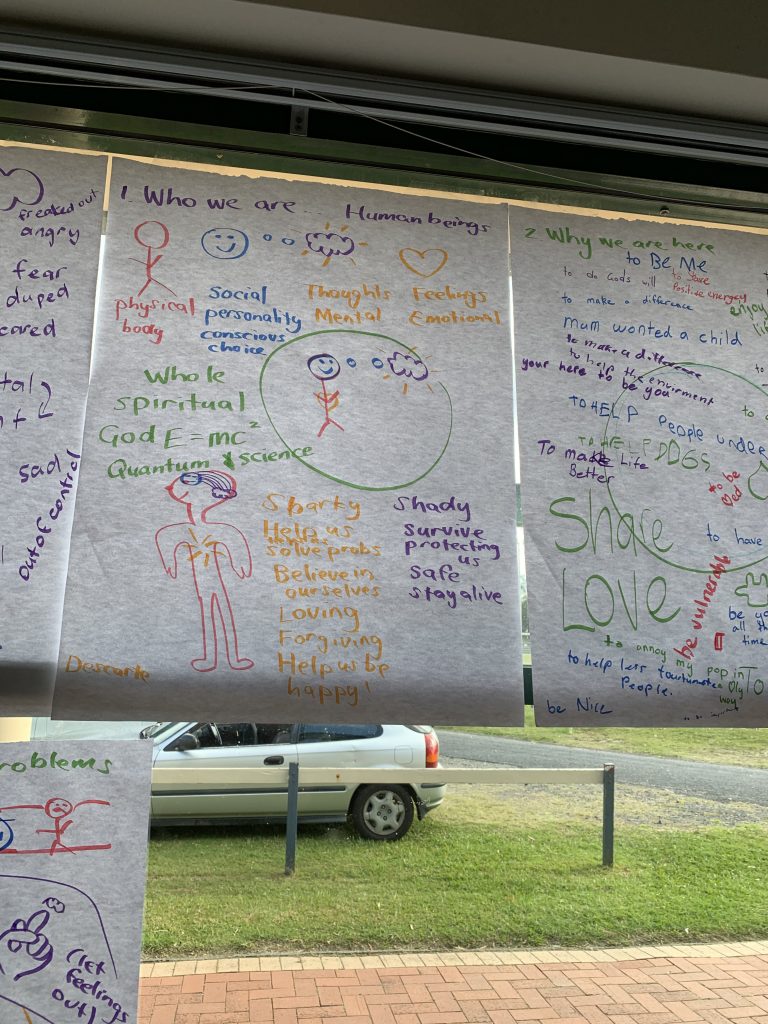 freaked out
angry
fear
duped
sad
out of control
1. Who we are ... Human beings
physical
body
Social
personality
conscious
choice
Thoughts
Mental
Feelings
Emotional
Whole
spiritual
God E=mc²
Quantum science
Sparky
Help us
solve probs
Believe in
ourselves
Loving
Forgiving
Help us be
happy!
Shady
survive
protecting
us
safe
stay alive
Descarte
2. Why we are here
to Be Me
to do Gods will
to make a difference
enjoy
mum wonted a child
to make a difference
to help the enviroment
your here to be you
TO HELP People
TO HELP DOGS
To make Life
Better
to be
Share
to have
LOVE
be vulnerable
all the
time
to annoy my pop in
way
to help less
People.
be Nice
roblems
(let
feelings
out)